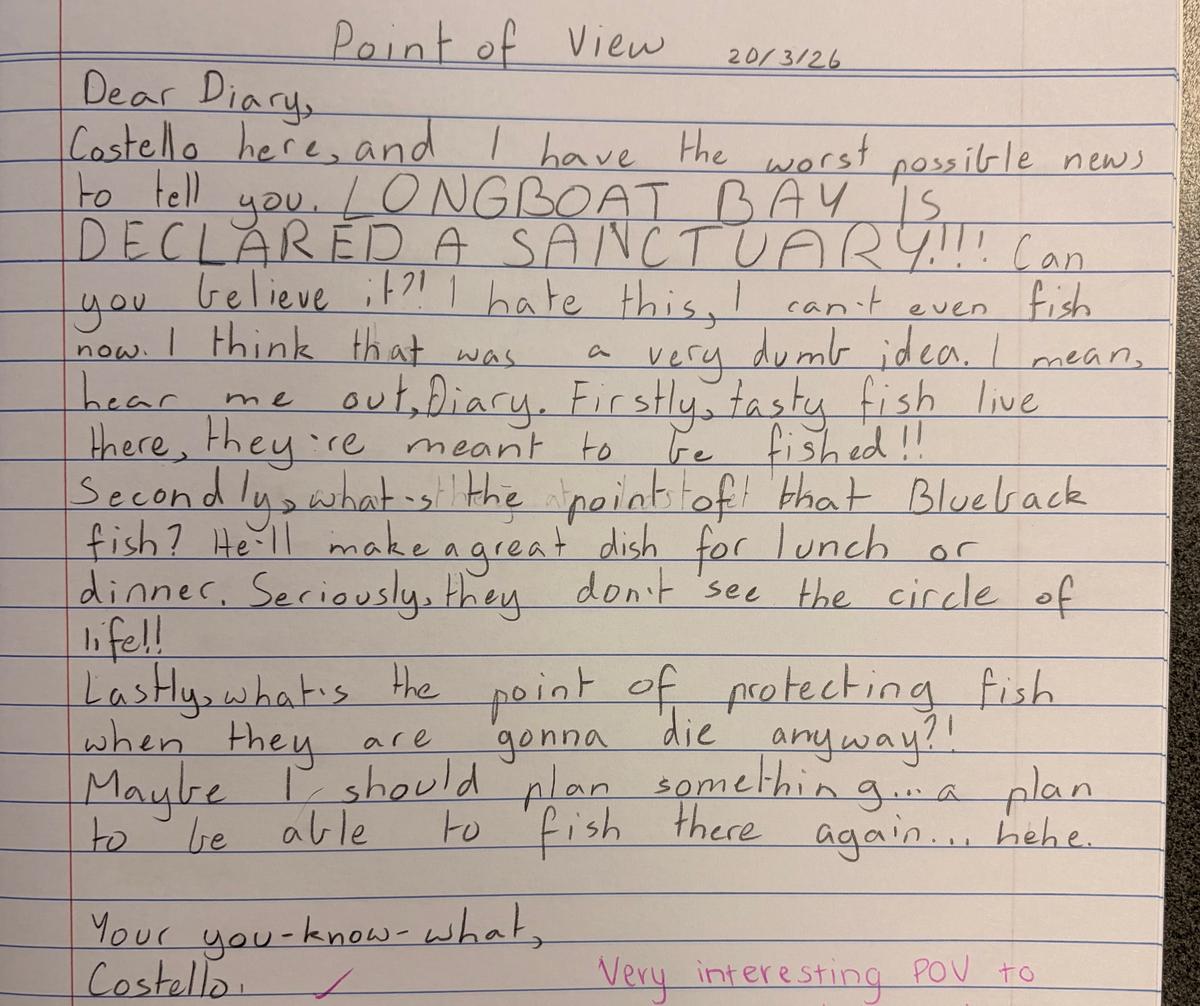 Point of View 20/3/26
Dear Diary,
Costello here, and I have the worst possible news
to tell you. LONGBOAT BAY IS
DECLARED A SANCTUARY!!! Can
you believe it?! I hate this, I can't even fish
now. I think that was a very dumb idea. I mean,
hear me out, Diary. Firstly, tasty fish live
there, they're meant to be fished!!
Secondly, what's the point of that Blueback
fish? He'll make a great dish for lunch or
dinner. Seriously, they don't see the circle of
life!!
Lastly, what's the point of protecting fish
when they are gonna die anyway?!
Maybe I should plan something... a plan
to be able to fish there again... hehe.
Your you-know-what,
Costello.
Very interesting POV to